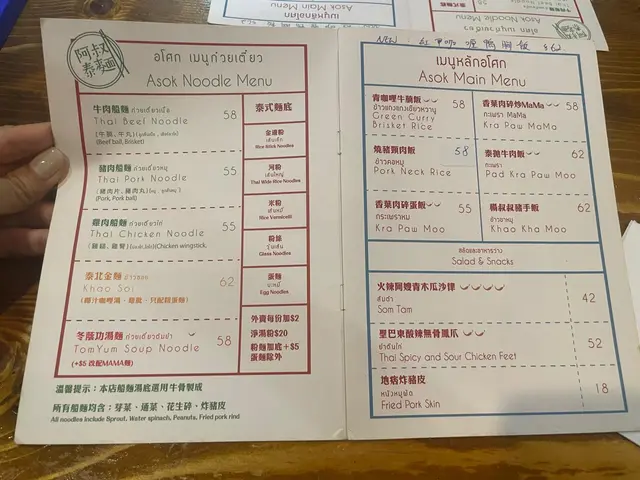 阿叔
泰麵
อโศก เมนูก๋วยเตี๋ยว
Asok Noodle Menu
牛肉船麵 ก๋วยเตี๋ยวเนื้อ
Thai Beef Noodle 58
(牛腩,牛丸)
(Beef ball, Brisket)
豬肉船麵 ก๋วยเตี๋ยวหมู
Thai Pork Noodle 55
(豬肉片,豬肉丸)
(Pork, Pork ball)
雞肉船麵 ก๋วยเตี๋ยวไก่
Thai Chicken Noodle 55
(Chicken wingstick,
泰北金麵 ข้าวซอย
Khao Soi 62
(椰汁咖喱湯、雞髀、只配雞蛋麵)
冬蔭功湯麵 ก๋วยเตี๋ยวต้มยำ
TomYum Soup Noodle 58
(+$5 改配MAMA麵)
泰式麵底
金邊粉
เส้นเล็ก
Rice Stick Noodles
河粉
เส้นใหญ่
Thai Wide Rice Noodles
米粉
เส้นหมี่
Rice Vermicelli
粉絲
วุ้นเส้น
Glass Noodles
蛋麵
บะหมี่
Egg Noodles
外賣每份加$2
淨湯粉$20
粉麵加底+$5
蛋麵除外
溫馨提示:本店船麵湯底選用牛骨製成
所有船麵均含:芽菜、通菜、花生碎、炸豬皮
All noodles include Sprout, Water spinach, Peanuts, Fried pork rind
NEW 紅 咖 喱 鴨 胸 飯 $62
เมนูหลักอโศก
Asok Main Menu
青咖哩牛腩飯 58
ข้าวแกงเขียวหวานเนื้อ
Green Curry
Brisket Rice
燒豬頸肉飯 58
ข้าวคอหมู
Pork Neck Rice
香葉肉碎蛋飯 55
กะเพราหมู
Kra Paw Moo
香葉肉碎炒MaMa 58
กะเพรา MaMa
Kra Paw MaMa
泰拋牛肉飯 62
Pad Kra Paw Moo
楊叔叔豬手飯 62
ข้าวขาหมู
Khao Kha Moo
สลัดและอาหารว่าง
Salad & Snacks
火辣阿嫂青木瓜沙律 42
ส้มตำ
Som Tam
聖巴東酸辣無骨鳳爪 52
ยำตีนไก่
Thai Spicy and Sour Chicken Feet
地痞炸豬皮 18
หนังหมูทอด
Fried Pork Skin